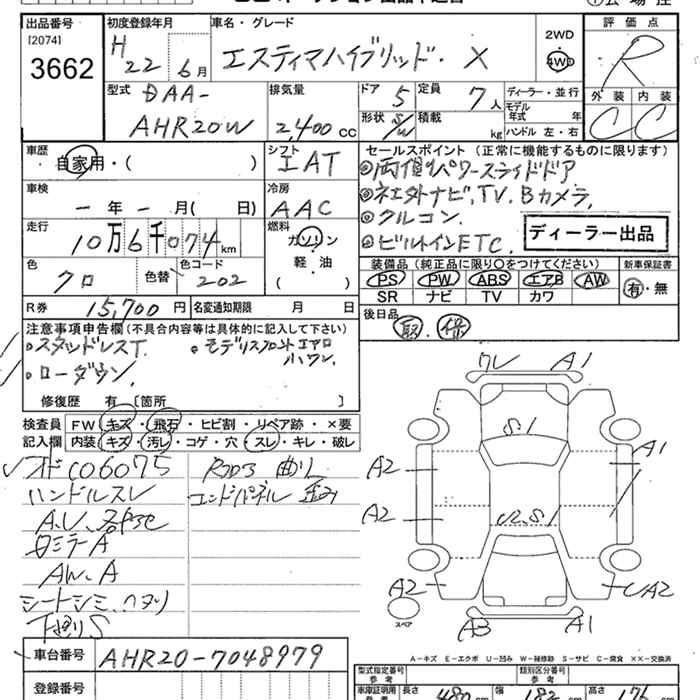 出品番号 初度登録年月 車名・グレード 評価点
[2074]
3662
H22 6月 エスティマハイブリッド・ X 2WD 4WD R
型式 排気量 ドア 定員 ディーラー・並行 外装 内装
DAA-
AHR20W 2,400 cc 5 7人 モデル年式 年 C C
形状 S/W 積載 kg ハンドル 左・右
車歴 自家用・( ) シフト IAT
セールスポイント(正常に機能するものに限ります)
◎両側パワースライドドア
車検 ー年ー月( 日) 冷房 AAC
◎ネエタトナビ,TV.Bカメラ,
◎クルコン.
走行 10万6千074km 燃料 ガソリン 軽・油 ( )
◎ビルトインETC.
ディーラー出品
色 クロ 色替 色コード 202
装備品(純正品に限り○をつけてください) 新車保証書
PS PW ABS エアB AW 有・無
SR ナビ TV カワ
R券 15,700円 名変通知期限 月 日
後日品
取. 保
注意事項申告欄(不具合内容等は具体的に記入して下さい)
・スタッドレスT. ・モデリスタフロントエアロ
・ローダウン.
修復歴 有 〔箇所 〕
検査員 FW キズ・飛石・ヒビ割・リペア跡・×要
記入欄 内装 キズ・汚レ・コゲ・穴・スレ・キレ・破レ
オドC06075 Rフロア 曲り
ハンドルスレ エンドパネル 歪み
ミラーA
AW.A
シートシミ.ヘタリ
下廻りS
ワレ A1
S.1
A2 A1
A2
A2 A2
スペア A3 A1
車台番号 AHR20-7048979
A-キズ E-エクボ U-凹み W-補修跡 S-サビ C-腐食 XX-交換済
登録番号
型式指定番号 参考 類別区分番号 参考
車庫証明用 参考 長さ 480 cm 幅 182 cm 高さ 176 cm